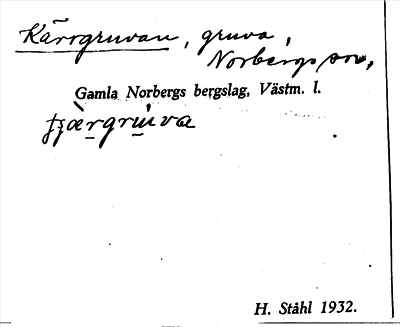 Kärrgruvan, gruva,
Norbergs sn,
Gamla Norbergs bergslag, Västm. l.
H. Ståhl 1932.